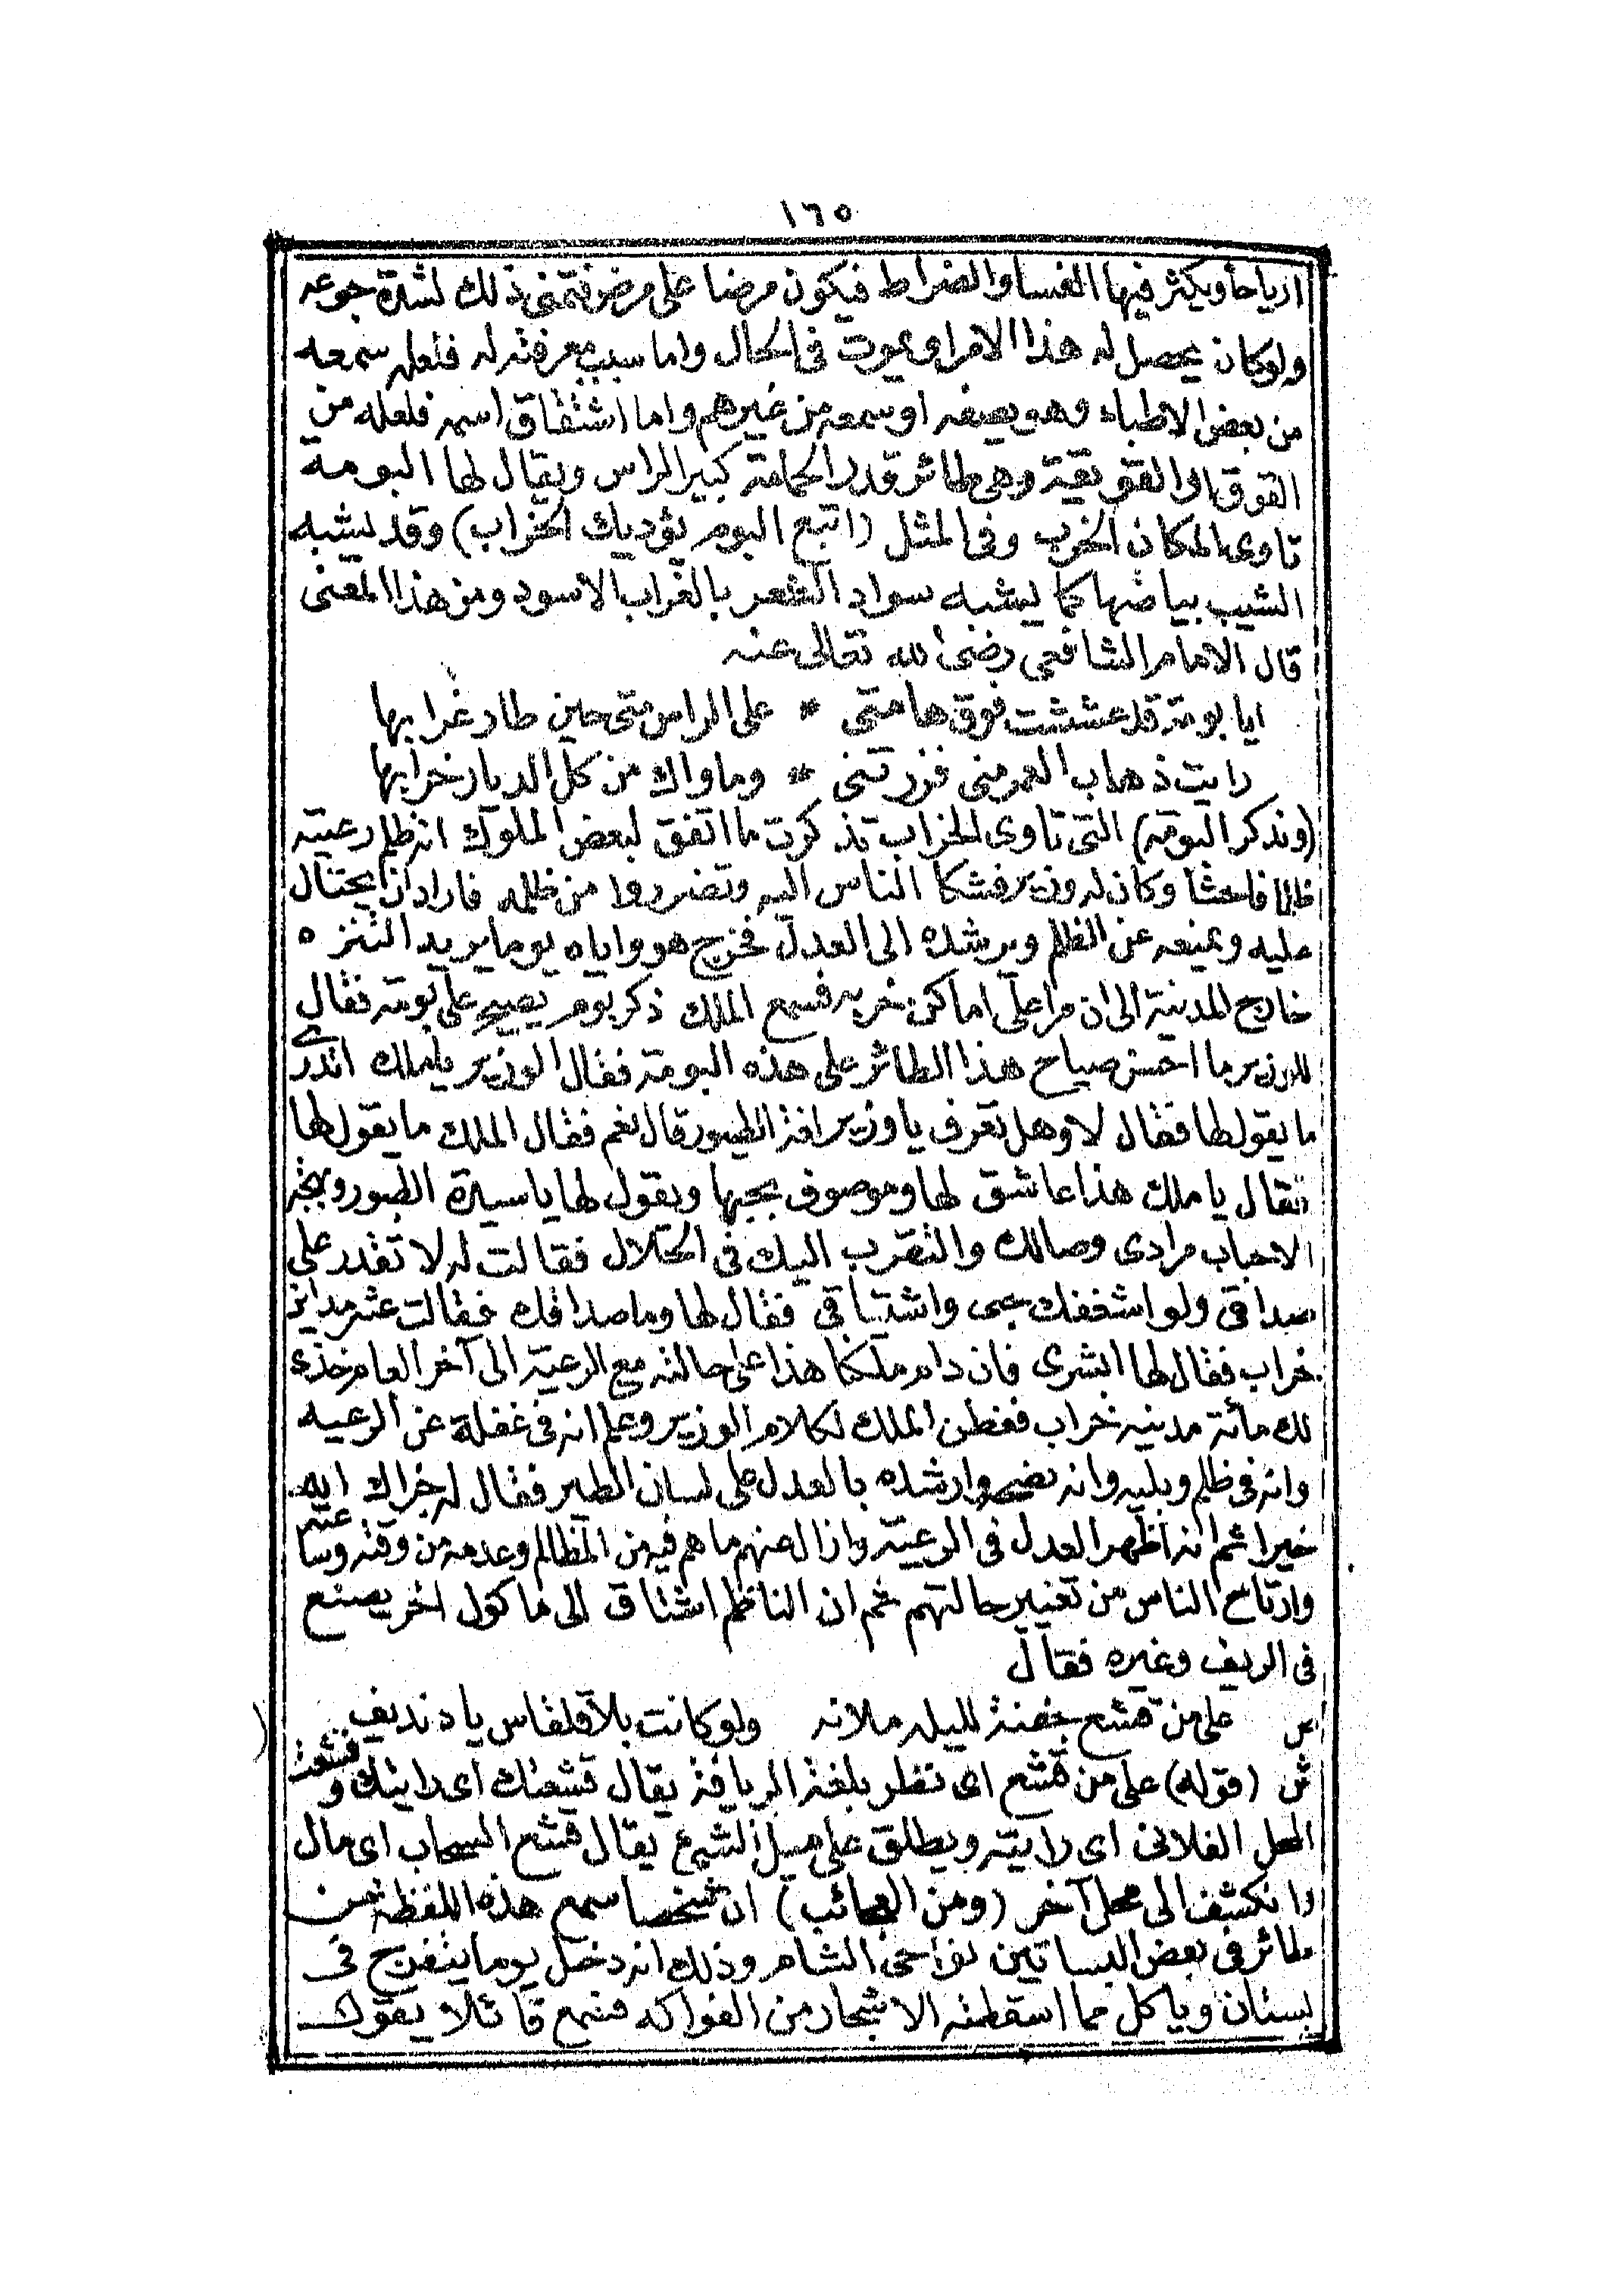 ١٦٥
ارياحا ويكثر فيها الفسا والضراط فيكون مرضا على مرض فتمنى ذلك لشدة جوعه
ولو كان يحصل له هذا الامر او يموت فى الحال واما سبب معرفته له فلعله سمعه
من بعض الاطباء وهو يصفه او سمعه من غيرهم واما اشتقاق اسمه فلعله من
القوق او القويقة وهى طائر قدر الحمامة كبير الراس ويقال لها البومة
تاوى المكان الخرب وفى المثل (اتبع البوم يؤديك الخراب) وقد يشبه
الشيب ببياضها كما يشبه سواد الشعر بالغراب الاسود ومن هذا المعنى
قال الامام الشافعى رضى الله تعالى عنه
ايا بومة قد عششت فوق هامتى * على الراس منى حين طار غرابها
رايت ذهاب العمر منى فزرتنى * وماواك من كل الديار خرابها
(وبذكر البومة) التى تاوى الخراب تذكرت ما اتفق لبعض الملوك انه ظلم رعيته
ظلما فاحشا وكان له وزير فشكا الناس اليه وتضرروا من ظلمه فاراد ان يحتال
عليه ويمنعه عن الظلم ويرشده الى العدل فخرج هو واياه يوما يريد التنزه
خارج المدينة الى ان مرا على اماكن خربه فسمع الملك ذكر بوم يصيح على بومة فقال
للوزير ما احسن صياح هذا الطائر على هذه البومة فقال الوزير يا ملك اتدرى
ما يقول لها فقال لا وهل تعرف يا وزير لغة الطيور قال نعم فقال الملك ما يقول لها
فقال يا ملك هذا عاشق لها وموصوف بحبها ويقول لها يا سيدة الطيور وبهجة
الاحباب مرادى وصالك والتقرب اليك فى الحلال فقالت له لا تقدر على
صداقى ولو اشغفك حبى واشتياقى فقال لها وما صداقك فقالت عشر مداين
خراب فقال لها ابشرى فان دام ملكنا هذا على حالته مع الرعية الى آخر العام خذى
لك مائة مدينه خراب ففطن الملك لكلام الوزير وعلم انه فى غفلة عن الرعيه
وانه فى ظلم وبليه وانه نصحه وارشده بالعدل على لسان الطير فقال له جزاك الله
خيرا ثم انه اظهر العدل فى الرعية وازال عنهم ما هم فيه من المظالم وعدمه من وقته وساعته
وارتاح الناس من تغيير حالتهم ثم ان الناظم اشتاق الى ماكول اخر يصنع
فى الريف وغيره فقال
ص على من قشع جفنة لليله ملانه ولو كانت بلا قلقاس يا دنديف
ش (قوله) على من قشع اى نظر بلغة الريافة يقال قشعتك اى رايتك وقشعت
المحل الفلانى اى رايته ويطلق على ميل الشىء يقال قشع السحاب اى مال
وانكشف الى محل آخر (ومن العجائب) ان شخصا سمع هذه اللفظة من
طائر فى بعض البساتين نواحى الشام وذلك انه دخل يوما يتفرج فى
بستان وياكل مما اسقطته الاشجار من الفواكه فسمع قائلا يقول